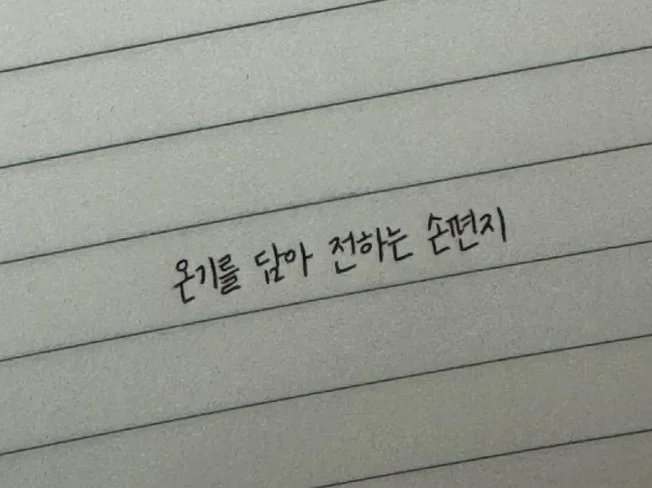 온기를 담아 전하는 손편지